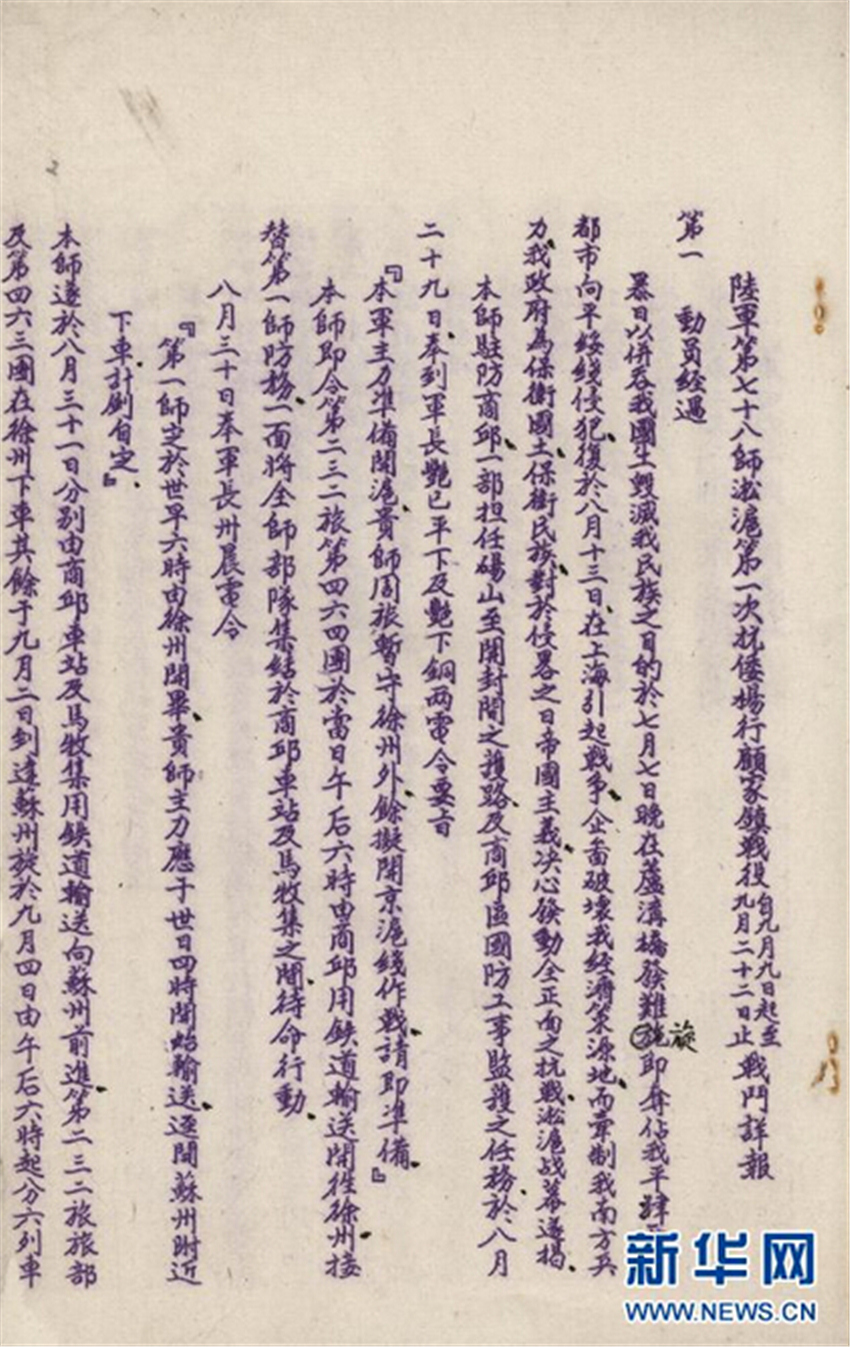 陸軍第七十八師淞滬第一次抗倭楊行顧家鎮戰役自九月九日起至九月二十二日止戰鬥詳報
第一 動員經過
暴日以併吞我國土毀滅我民族之目的於七月七日晚在蘆溝橋發難旋即奪佔我平肆
都市向平綏綫侵犯復於八月十三日在上海引起戰爭企啚破壞我經濟策源地而牽制我南方兵
力我政府為保衛國土保衛民族對於侵畧之日帝國主義決心發動全正面之抗戰淞滬战幕遂揭
本師駐防商邱一部担任碭山至開封間之護路及商邱區國防工事監護之任務於八月
二十九日奉到軍長艷巳平下及艷下銅两電令要旨
『本軍主力準備開滬貴師周旅暫守徐州外餘擬開京滬綫作戰請即準備』
本師即令第二三二旅第四六四團於當日午后六時由商邱用鉄道輸送開往徐州接
替第一師防務一面將全師部隊集結於商邱車站及馬牧集之間待命行動
八月三十日奉軍長卅晨電令
『第一師定於世早六時由徐州開畢貴師主力應于世日四時開始輸送逕開蘇州附近
下車計劃自定』
本師遂於八月三十一日分別由商邱車站及馬牧集用鉄道輸送向蘇州前進第二三二旅旅部
及第四六三團在徐州下車其餘于九月二日到達蘇州旋於九月四日由午后六時起分六列車
新华网
WWW.NEWS.CN